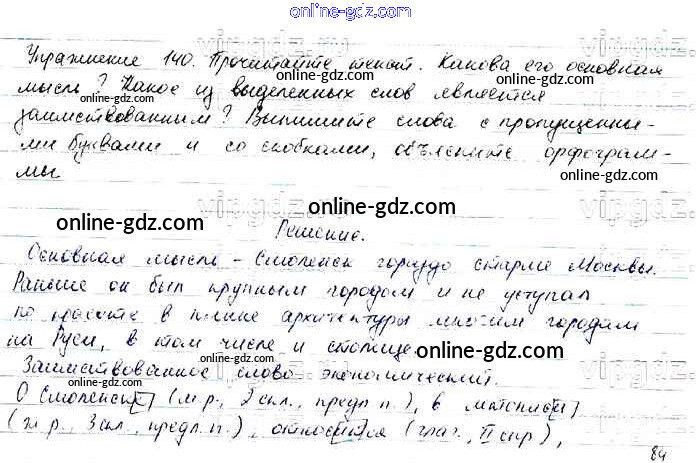 online-gdz.com
Упражнение 140. Прочитайте текст. Какова его основная
мысль? Какое из выделенных слов является
заимствованным? Выпишите слова с пропущенны-
ми буквами и со скобками, объясните орфограм-
мы
Решение.
Основная мысль - Смоленск гораздо старше Москвы.
Раньше он был крупным городом и не уступал
по красоте в плане архитектуры многим городам
на Руси, в том числе и столице.
Заимствованное слово экономический.
О Смоленск[е] (м.р., 2 скл., предл. п.), в летопис[и]
(ж.р., 3 скл., предл. п.), относ[и]тся (глаг., II спр),
84